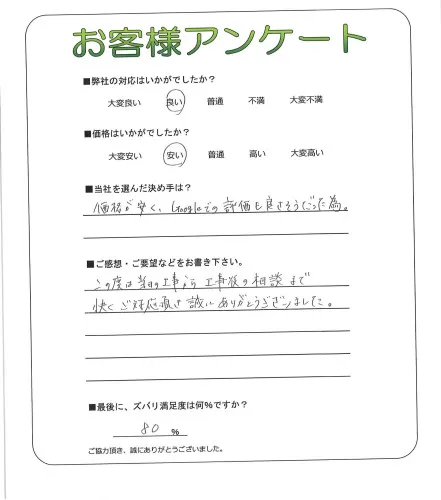 お客様アンケート
■弊社の対応はいかがでしたか？
大変良い 良い 普通 不満 大変不満
■価格はいかがでしたか？
大変安い 安い 普通 高い 大変高い
■当社を選んだ決め手は？
価格が安く、Googleでの評価も良さそうだった為。
■ご感想・ご要望などをお書き下さい。
この度は 工事から 工事後の相談まで
快くご対応頂き誠にありがとうございました。
■最後に、ズバリ満足度は何％ですか？
80 ％
ご協力頂き、誠にありがとうございました。